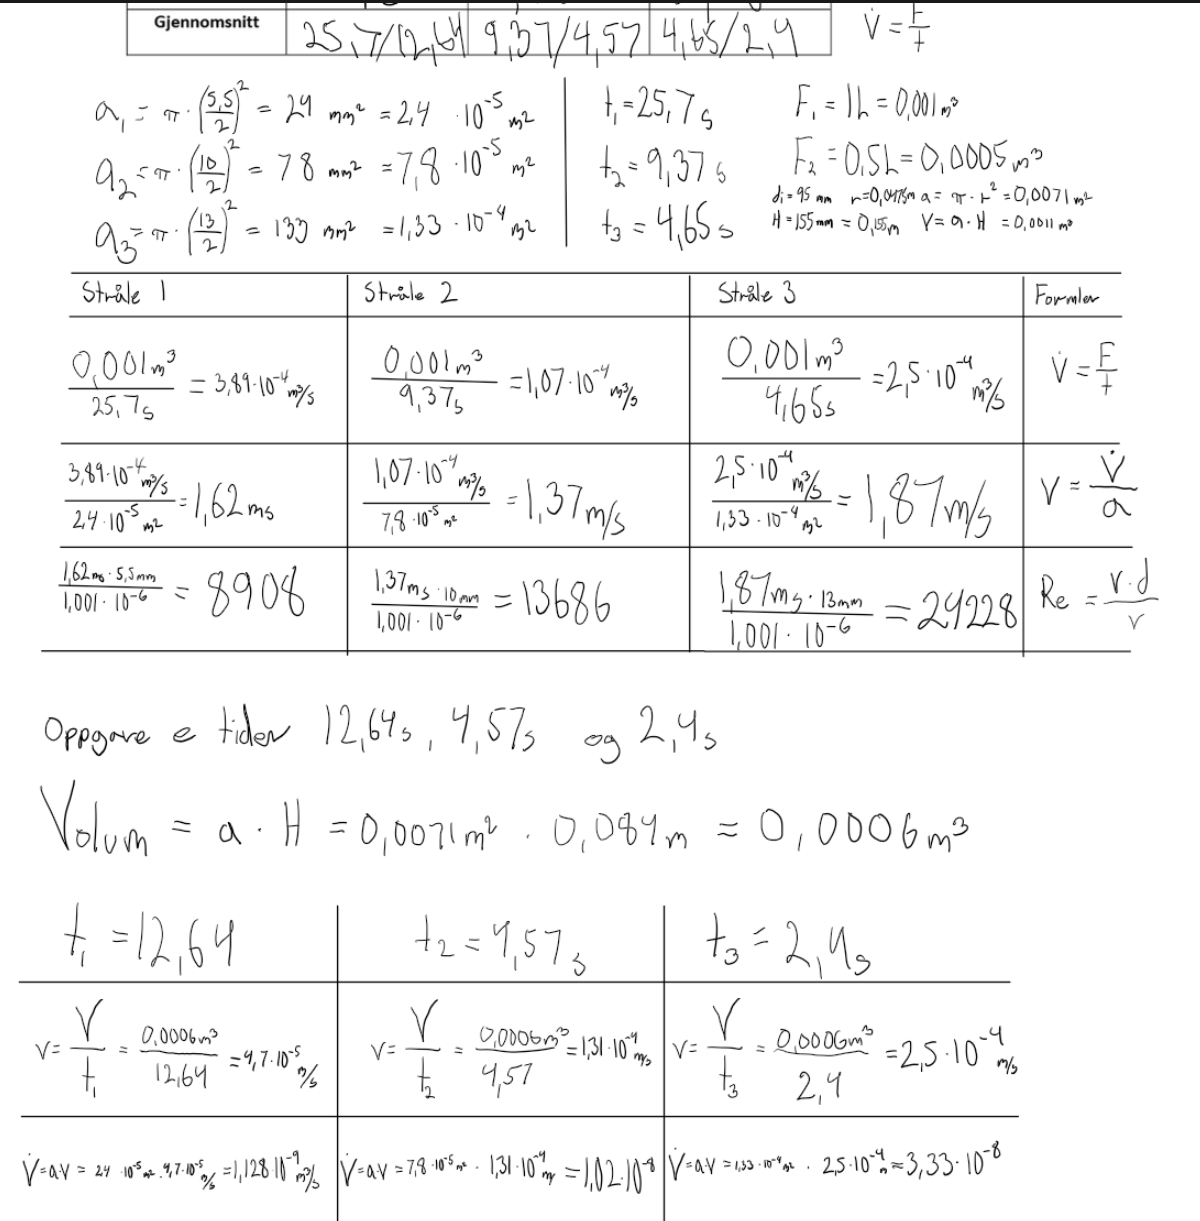 Gjennomsnitt 25,7/12,64 9,37/4,57 4,65/2,4 V̇ = F/t
a₁ = π · (5,5/2)² = 24 mm² = 2,4 · 10⁻⁵ m² t₁ = 25,7 s F₁ = 1L = 0,001 m³
a₂ = π · (10/2)² = 78 mm² = 7,8 · 10⁻⁵ m² t₂ = 9,37 s F₂ = 0,5L = 0,0005 m³
d₁ = 95 mm r = 0,0475m a = π · r² = 0,0071 m²
a₃ = π · (13/2)² = 133 mm² = 1,33 · 10⁻⁴ m² t₃ = 4,65 s H = 155 mm = 0,155m V = a · H = 0,0011 m³
Stråle 1 Stråle 2 Stråle 3 Formler
0,001 m³/25,7s = 3,89 · 10⁻⁴ m³/s 0,001 m³/9,37s = 1,07 · 10⁻⁴ m³/s 0,001 m³/4,65s = 2,5 · 10⁻⁴ m³/s V̇ = F/t
3,89 · 10⁻⁴ m³/s / 2,4 · 10⁻⁵ m² = 1,62 ms 1,07 · 10⁻⁴ m³/s / 7,8 · 10⁻⁵ m² = 1,37 m/s 2,5 · 10⁻⁴ m³/s / 1,33 · 10⁻⁴ m² = 1,87 m/s V = V̇/a
1,62 ms · 5,5mm / 1,001 · 10⁻⁶ = 8908 1,37 ms · 10 mm / 1,001 · 10⁻⁶ = 13686 1,87 ms · 13mm / 1,001 · 10⁻⁶ = 24228 Re = v·d/v
Oppgave e tider 12,64s, 4,57s og 2,4s
Volum = a · H = 0,0071 m² · 0,084 m = 0,0006 m³
t₁ = 12,64 t₂ = 4,57 s t₃ = 2,4s
v = V/t₁ = 0,0006 m³/12,64 = 4,7 · 10⁻⁵ m/s v = V/t₂ = 0,0006 m³/4,57 = 1,31 · 10⁻⁴ m/s v = V/t₃ = 0,0006 m³/2,4 = 2,5 · 10⁻⁴ m/s
V̇ = a·v = 24 · 10⁻⁵ m² · 4,7 · 10⁻⁵ m/s = 1,128 · 10⁻⁹ m³/s V̇ = a·v = 7,8 · 10⁻⁵ m² · 1,31 · 10⁻⁴ = 1,02 · 10⁻⁸ V̇ = a·v = 1,33 · 10⁻⁴ m² · 2,5 · 10⁻⁴ = 3,33 · 10⁻⁸